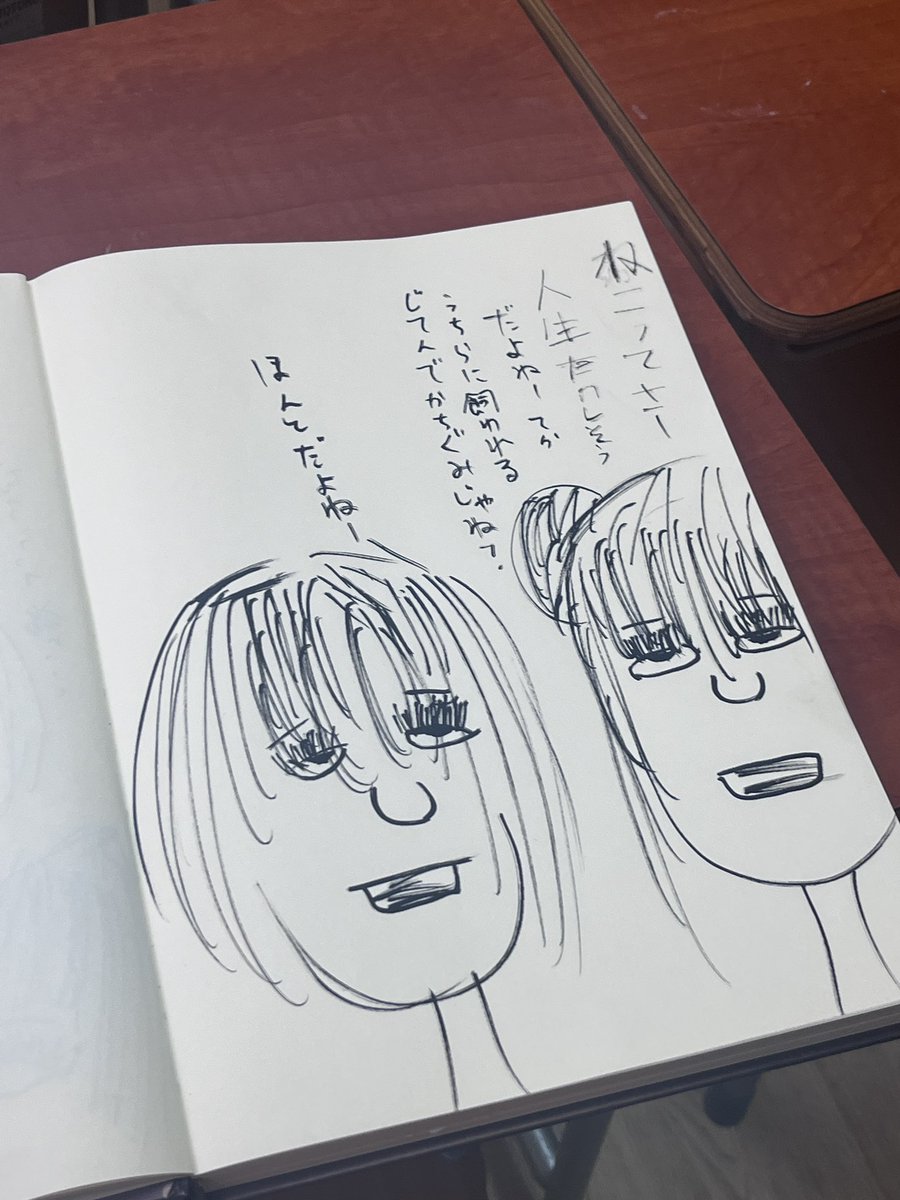 ねこってさー
人生たのしそう
だよねーてか
うちらに飼われる
じてんでかちぐみじゃね?
ほんとだよねー